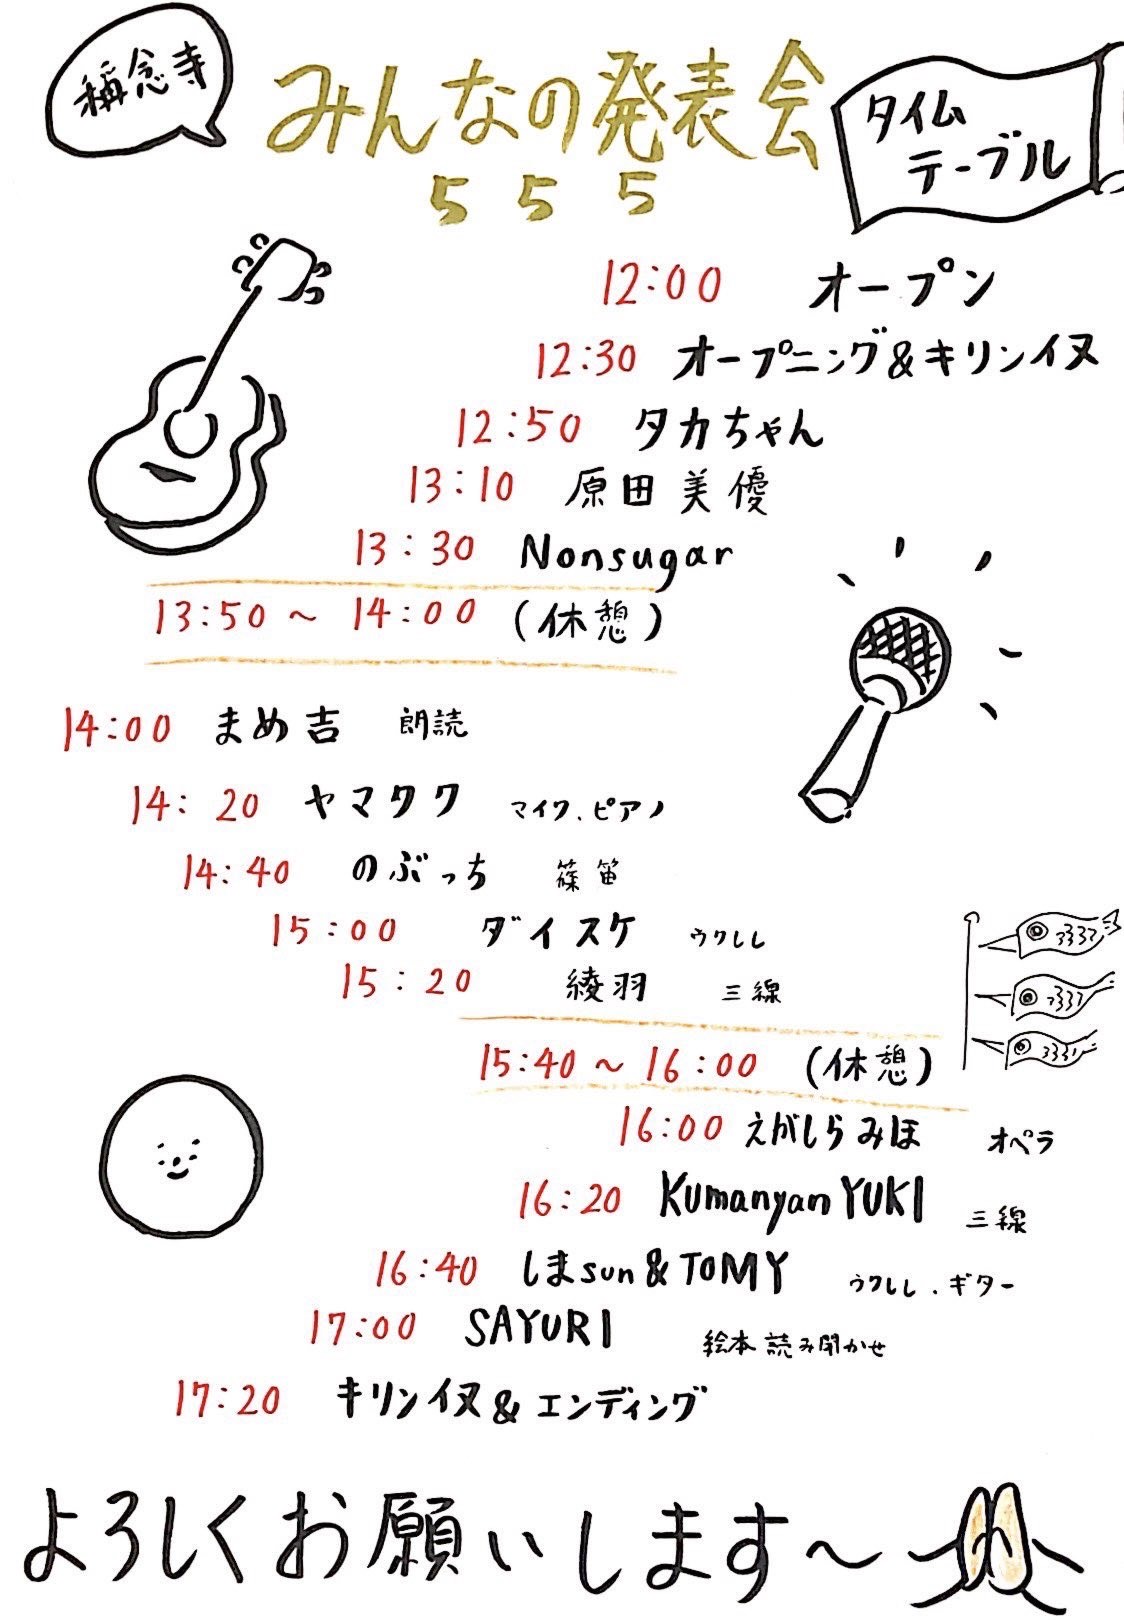 稱念寺
みんなの発表会
５５５
タイム
テーブル
12:00 オープン
12:30 オープニング&キリンイヌ
12:50 タカちゃん
13:10 原田美優
13:30 Nonsugar
13:50 ～ 14:00 (休憩)
14:00 まめ吉 朗読
14:20 ヤマタク マイク、ピアノ
14:40 のぶっち 篠笛
15:00 ダイスケ ウクレレ
15:20 綾羽 三線
15:40 ～ 16:00 (休憩)
16:00 えがしらみほ オペラ
16:20 Kumanyan YUKI 三線
16:40 しまsun&TOMY ウクレレ、ギター
17:00 SAYURI 絵本読み聞かせ
17:20 キリンイヌ&エンディング
よろしくお願いします～